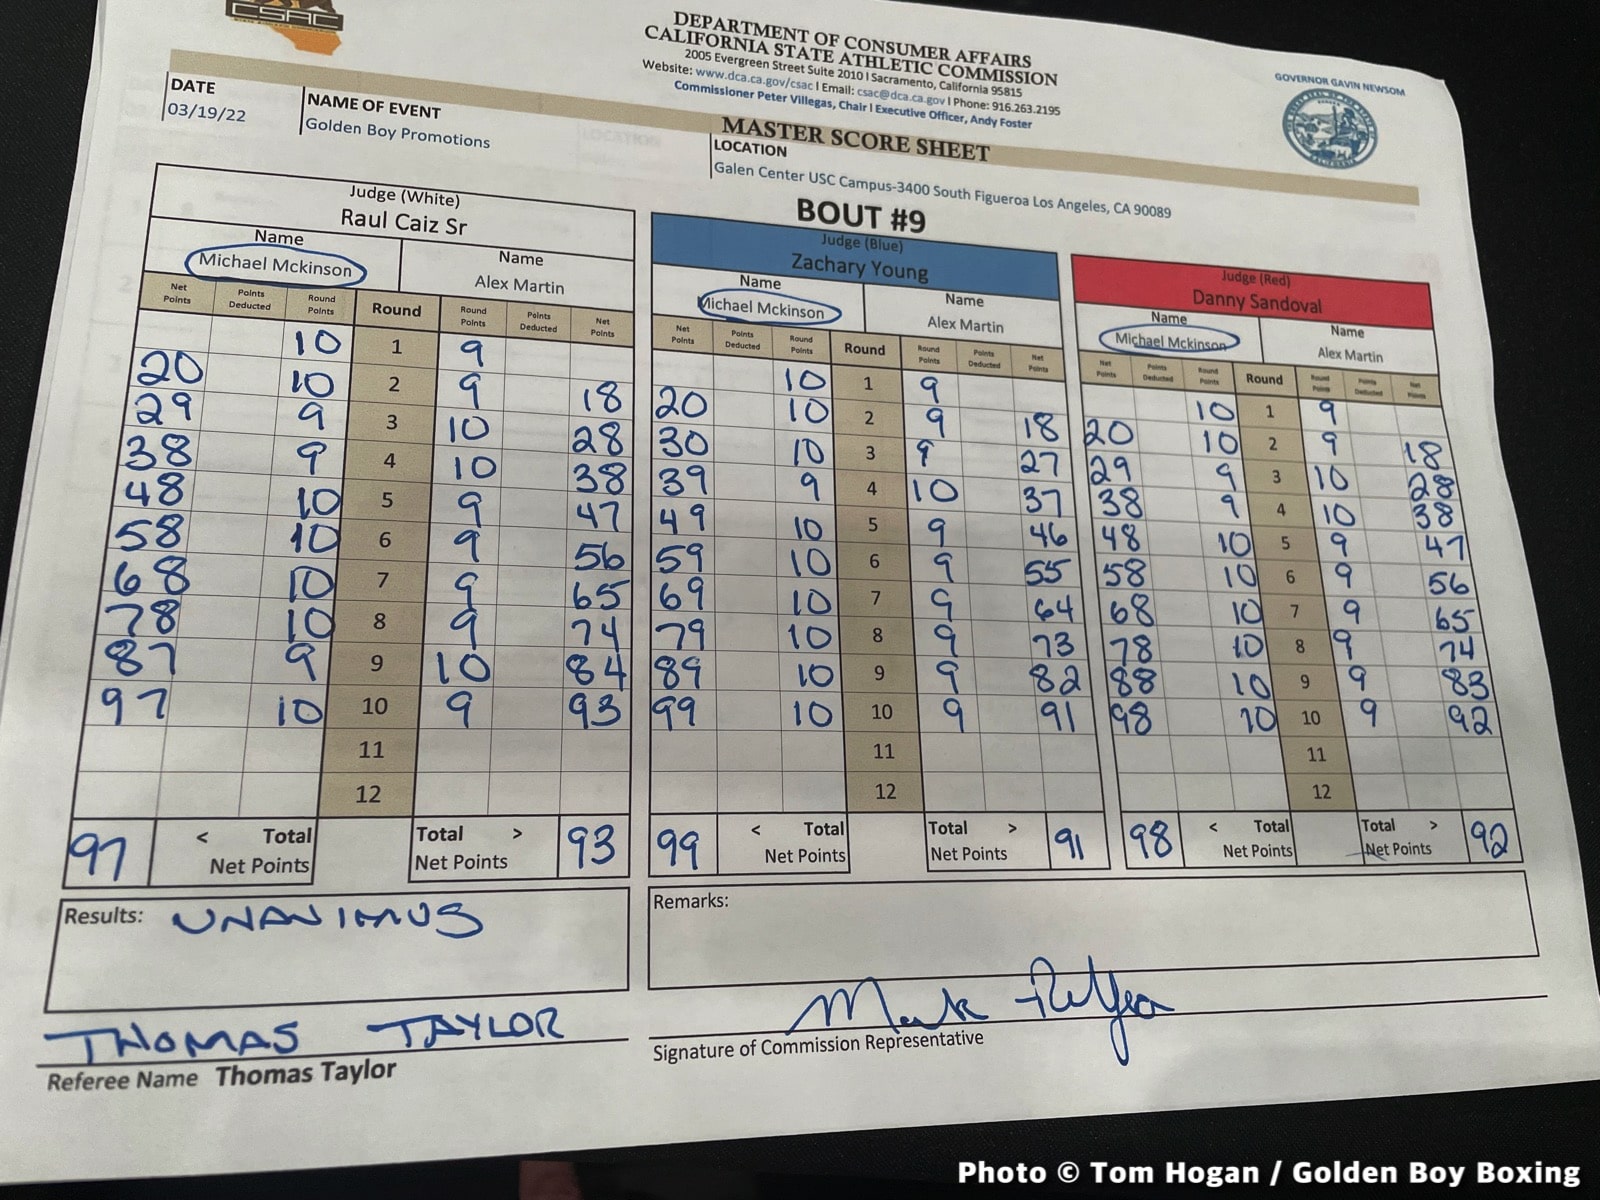 CSAC
DEPARTMENT OF CONSUMER AFFAIRS
CALIFORNIA STATE ATHLETIC COMMISSION
2005 Evergreen Street Suite 2010 I Sacramento, California 95815
Website: www.dca.ca.gov/csac I Email: csac@dca.ca.gov I Phone: 916.263.2195
Commissioner Peter Villegas, Chair I Executive Officer, Andy Foster
GOVERNOR GAVIN NEWSOM
MASTER SCORE SHEET
DATE NAME OF EVENT LOCATION
03/19/22 Golden Boy Promotions Galen Center USC Campus-3400 South Figueroa Los Angeles, CA 90089
BOUT #9
Judge (White)
Raul Caiz Sr
Name Name
Michael Mckinson Alex Martin
Net Points Points Deducted Round Points Round Round Points Points Deducted Net Points
10 1 9
20 10 2 9 18
29 9 3 10 28
38 9 4 10 38
48 10 5 9 47
58 10 6 9 56
68 10 7 9 65
78 10 8 9 74
87 9 9 10 84
97 10 10 9 93
11
12
97 < Total Net Points Total > Net Points 93
Judge (Blue)
Zachary Young
Name Name
Michael Mckinson Alex Martin
Net Points Points Deducted Round Points Round Round Points Points Deducted Net Points
10 1 9
20 10 2 9 18
30 10 3 9 27
39 9 4 10 37
49 10 5 9 46
59 10 6 9 55
69 10 7 9 64
79 10 8 9 73
89 10 9 9 82
99 10 10 9 91
11
12
99 < Total Net Points Total > Net Points 91
Judge (Red)
Danny Sandoval
Name Name
Michael Mckinson Alex Martin
Net Points Points Deducted Round Points Round Round Points Points Deducted Net Points
10 1 9
20 10 2 9 18
29 9 3 10 28
38 9 4 10 38
48 10 5 9 47
58 10 6 9 56
68 10 7 9 65
78 10 8 9 74
88 10 9 9 83
98 10 10 9 92
11
12
98 < Total Net Points Total > Net Points 92
Results: UNANIMUS
Remarks:
THOMAS TAYLOR
Referee Name Thomas Taylor
Mark
Signature of Commission Representative
Photo © Tom Hogan / Golden Boy Boxing